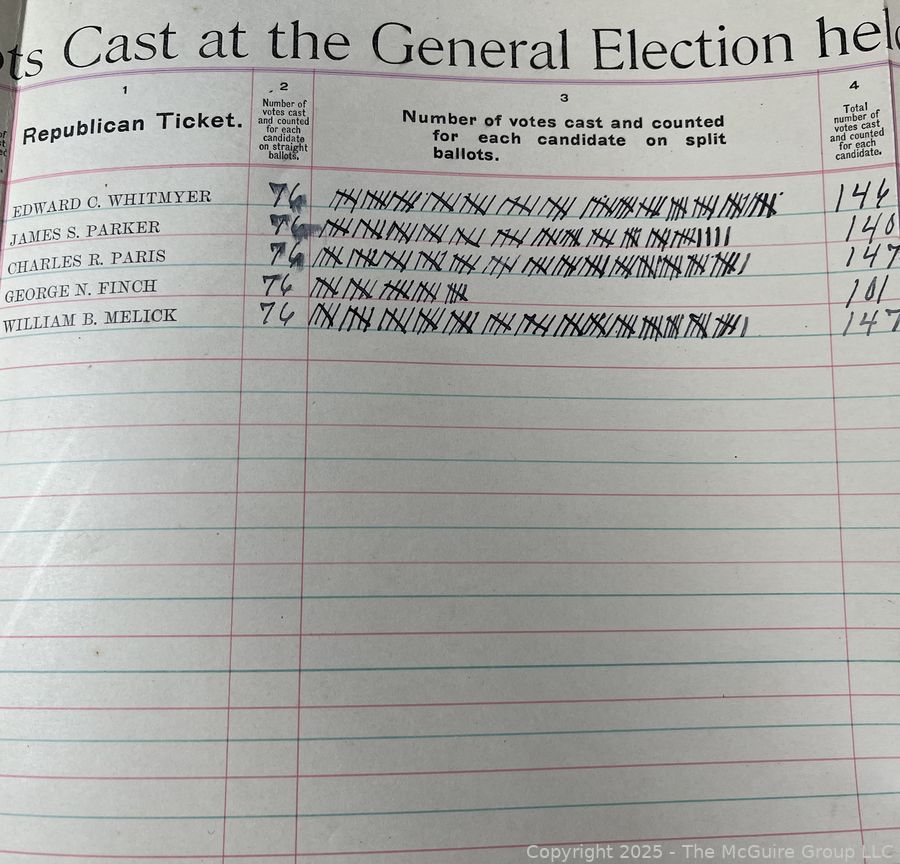 ts Cast at the General Election hel
1
Republican Ticket.
2
Number of
votes cast
and counted
for each
candidate
on straight
ballots.
3
Number of votes cast and counted
for each candidate on split
ballots.
4
Total
number of
votes cast
and counted
for each
candidate.
EDWARD C. WHITMYER 76 146
JAMES S. PARKER 76 140
CHARLES R. PARIS 76 147
GEORGE N. FINCH 76 101
WILLIAM B. MELICK 76 147
Copyright 2025 - The McGuire Group LLC